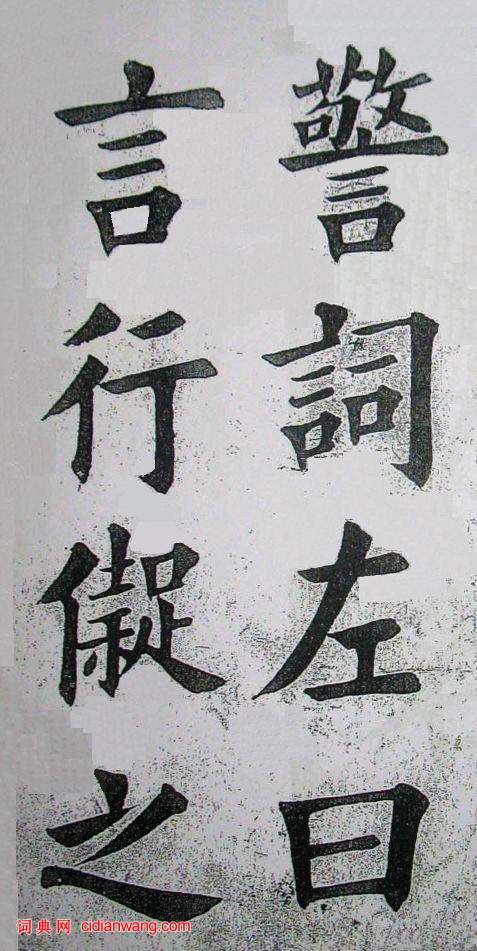 警詞左曰
言行儗之
词典网 cidianwang.com